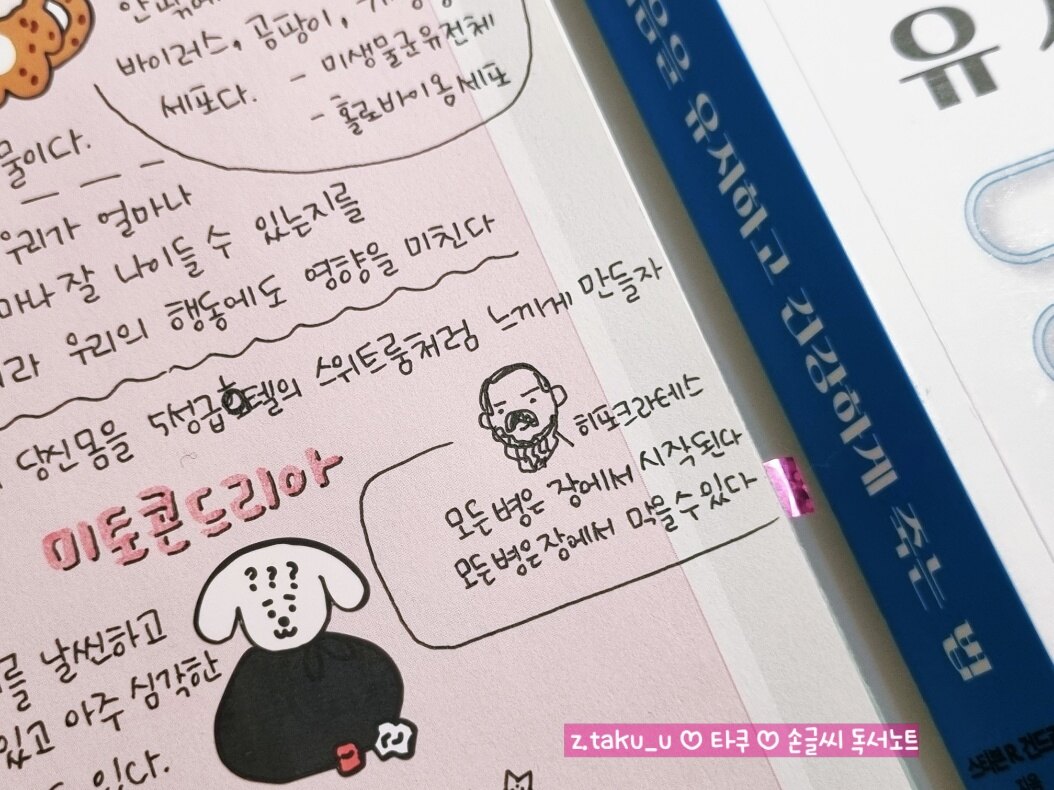 바이러스, 곰팡이,
세포다. - 미생물군유전체
- 홀로바이옴세포
물이다.
우리가 얼마나
마나 잘 나이들 수 있는지를
라 우리의 행동에도 영향을 미친다
당신몸을 5성급호텔의 스위트룸처럼 느끼게 만들자
히포크라테스
모든병은 장에서 시작된다
모든병은장에서 막을수있다
미토콘드리아
???
를 날씬하고
있고 아주 심각한
있다.
음을 유지하고 건강하게 죽는 법
유
스티븐 R. 건드리
지음
z.taku_u ♡ 타쿠 ♡ 손글씨 독서노트